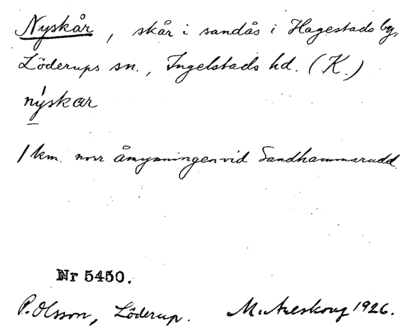 Nyskår, skår i sandås i Hagestads by,
Löderups sn., Ingelstads hd. (K.)
nýskar
1 km. norr åmynningen vid Sandhammarudd
Nr 5450.
P. Olsson, Löderup. M. Areskoug 1926.